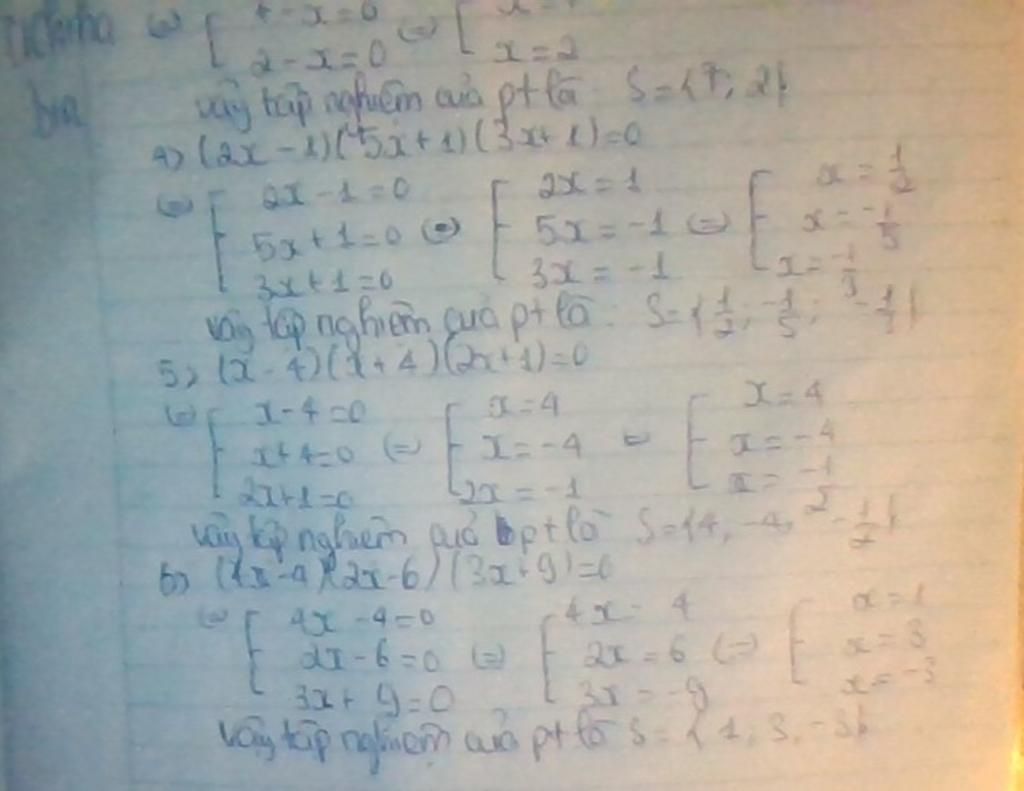 (=) [ 7-x=0 (=) [ x=7
2-x=0 x=2
vậy tập nghiệm của pt là S={7; 2}
4) (2x-1)(5x+1)(3x+1)=0
(=) [ 2x-1=0 [ 2x=1 [ x=1/2
5x+1=0 (=) 5x=-1 (=) x=-1/5
3x+1=0 3x=-1 x=-1/3
vậy tập nghiệm của pt là: S={1/2; -1/5; -1/3}
5) (x-4)(x+4)(2x+1)=0
(=) [ x-4=0 [ x=4 [ x=4
x+4=0 (=) x=-4 (=) x=-4
2x+1=0 2x=-1 x=-1/2
vậy tập nghiệm của pt là S={4, -4, -1/2}
6) (4x-4)(2x-6)(3x+9)=0
(=) [ 4x-4=0 [ 4x=4 [ x=1
2x-6=0 (=) 2x=6 (=) x=3
3x+9=0 3x=-9 x=-3
vậy tập nghiệm của pt là S={1, 3, -3}